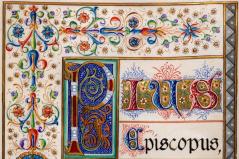 PIUS
Episcopus,